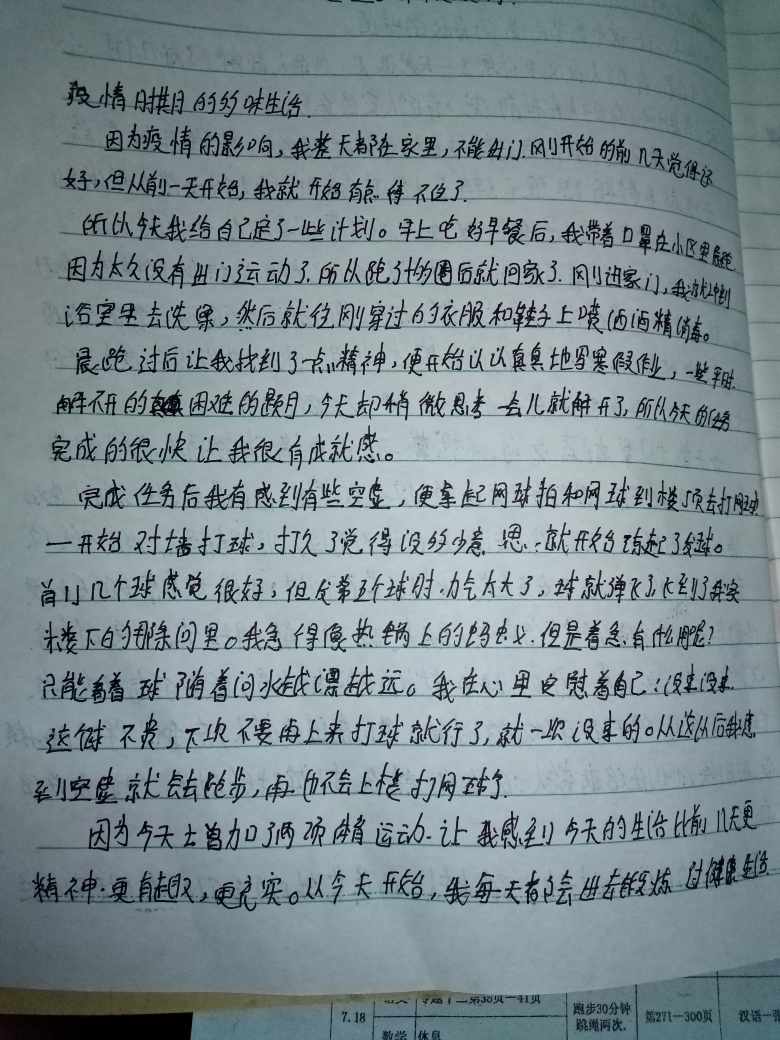 疫情时期的多味生活
因为疫情的影响,我整天都在家里,不能出门.刚开始的前几天觉得还
好,但从前一天开始,我就开始有点待不住了.
所以今天我给自己定了一些计划。早上吃好早餐后,我带着口罩在小区里晨跑
因为太久没有出门运动了.所以跑了十圈后就回家了.刚进家门,我就冲到
浴室里去洗澡,然后就往刚穿过的衣服和鞋子上喷洒酒精消毒。
晨跑过后让我找到了一点精神,便开始认认真真地写寒假作业,一些平时
解不开的困难的题目,今天却稍微思考一会儿就解开了,所以今天的任务
完成的很快让我很有成就感。
完成任务后我有感到有些空虚,便拿起网球拍和网球到楼顶去打网球
一开始对墙打球,打久了觉得没多少意思.就开始练起了发球。
前几个球感觉很好,但发第五个球时.力气太大了,球就弹飞了,飞到了我家
楼下的那条河里。我急得像热锅上的蚂蚁.但是着急有什么用呢?
只能看着球随着河水越漂越远。我在心里安慰着自己:没事没事
这个球不贵,下次不要再上来打球就行了,就一次没事的。从这以后我感
到空虚就会去跑步,再也不会上楼打网球了.
因为今天增加了两项体育运动.让我感到今天的生活比前几天更
精神.更有趣,更充实。从今天开始,我每天都会出去锻炼过健康生活
7.18
语文
专题十二第38页一41页
数学
休息
跑步30分钟
跳绳两次.
第271一300页
汉语一